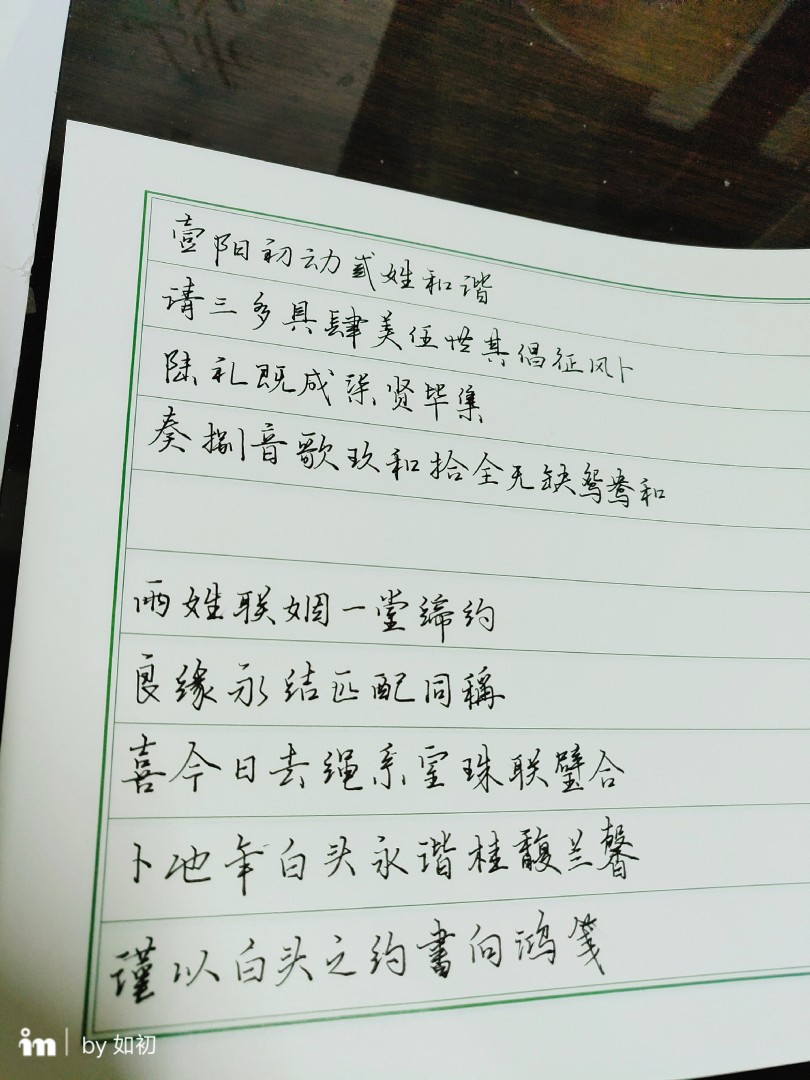 壹阳初动贰姓和谐
请三多具肆美伍世其倡征凤卜
陆礼既成柒贤毕集
奏捌音歌玖和拾全无缺鸳鸯和
两姓联姻一堂缔约
良缘永结匹配同稱
喜今日赤绳系定珠联璧合
卜他年白头永谐桂馥兰馨
谨以白头之约書向鸿笺
im | by 如初